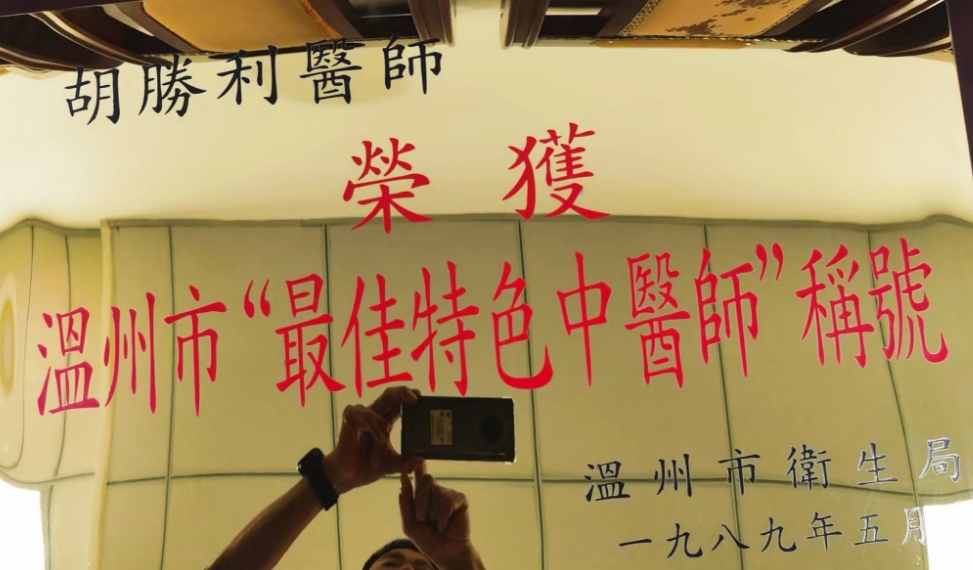 胡勝利醫師
榮獲
溫州市“最佳特色中醫師”稱號
溫州市衛生局
一九八九年五月